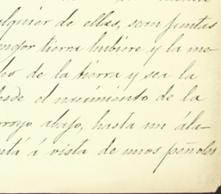 alquier de ellas, sean juntas
mejor tierra hubiere y la me
de la tierra y sea la
desde el nacimiento de la
rroyo abajo, hasta un ála
á vista de unos peñoles